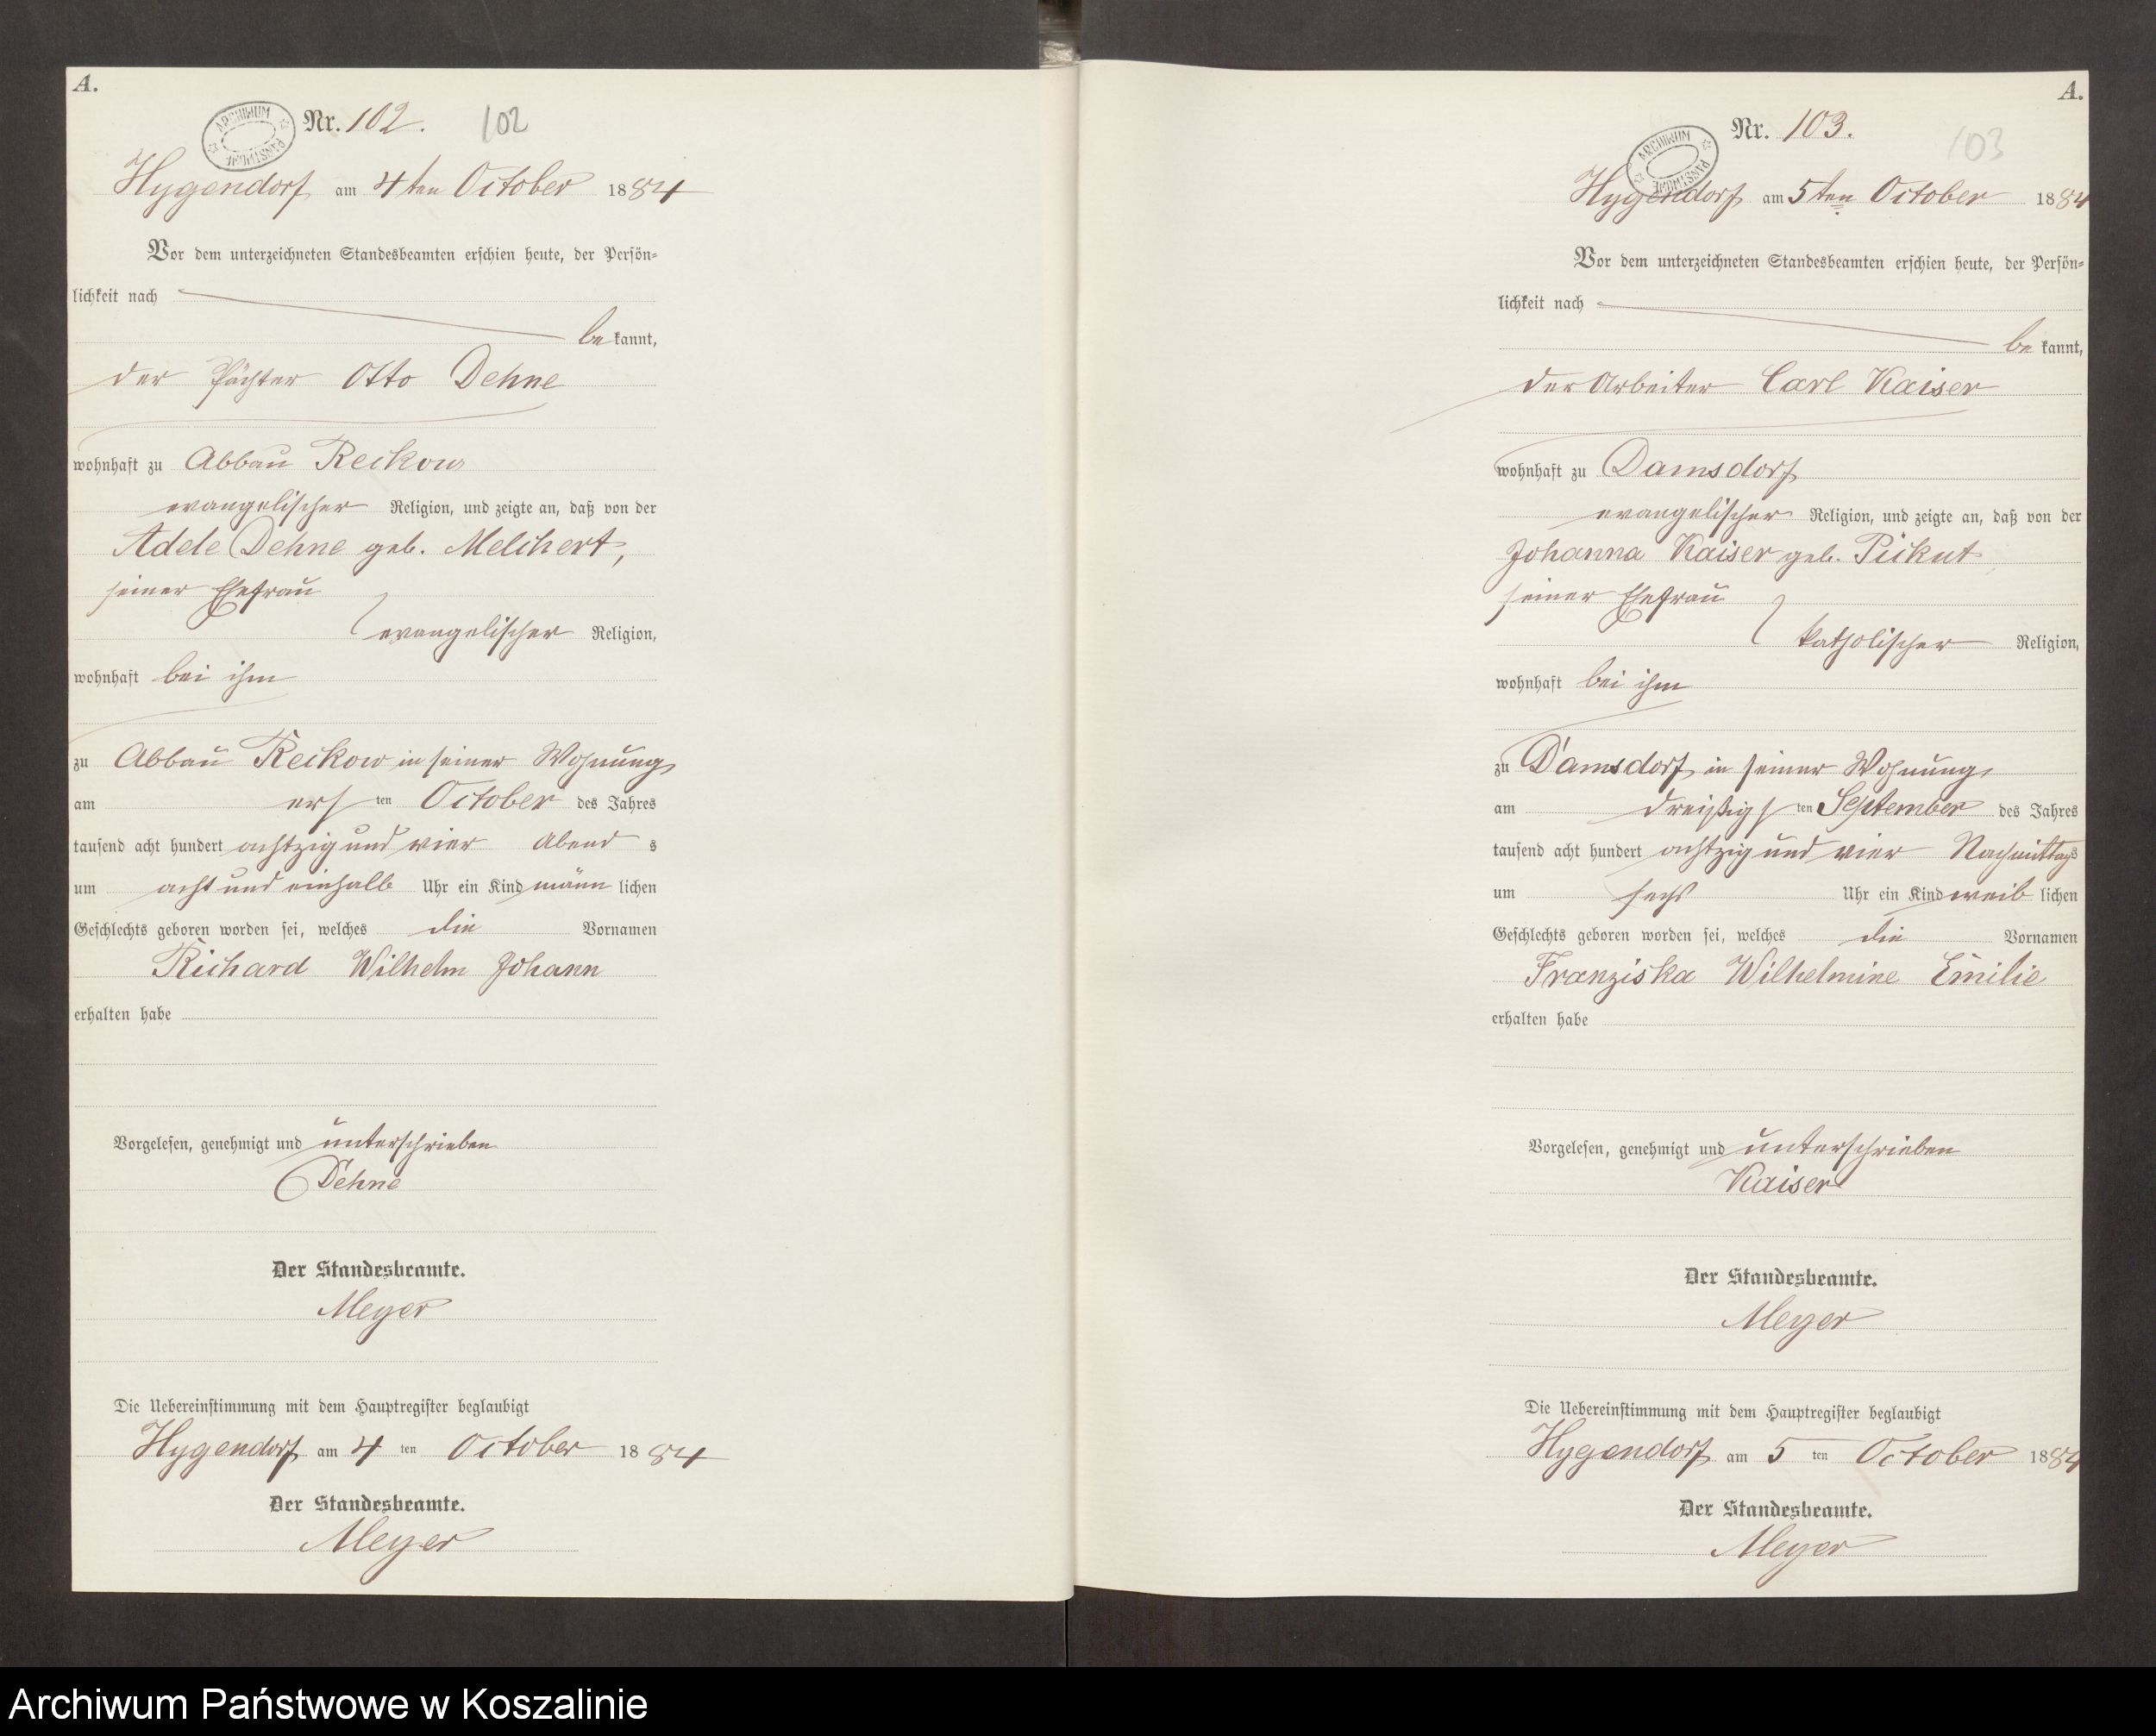 A.
ARCHIWUM PAŃSTWOWE
Nr. 102. 102
Hygendorf am 4ten October 1884
Vor dem unterzeichneten Standesbeamten erschien heute, der Persön-
lichkeit nach
bekannt,
der Pächter Otto Dehne
wohnhaft zu Abbau Reckow
evangelischer Religion, und zeigte an, daß von der
Adele Dehne geb. Melchert,
seiner Ehefrau
evangelischer Religion,
wohnhaft bei ihm
zu Abbau Reckow in seiner Wohnung
am ersten October des Jahres
tausend acht hundert achtzig und vier Abends
um acht und einhalb Uhr ein Kind männlichen
Geschlechts geboren worden sei, welches die Vornamen
Richard Wilhelm Johann
erhalten habe
Vorgelesen, genehmigt und unterschrieben
Dehne
Der Standesbeamte.
Meyer
Die Uebereinstimmung mit dem Hauptregister beglaubigt
Hygendorf am 4 ten October 1884
Der Standesbeamte.
Meyer
A.
ARCHIWUM PAŃSTWOWE
Nr. 103. 103
Hygendorf am 5ten October 1884
Vor dem unterzeichneten Standesbeamten erschien heute, der Persön-
lichkeit nach
bekannt,
der Arbeiter Carl Kaiser
wohnhaft zu Damsdorf
evangelischer Religion, und zeigte an, daß von der
Johanna Kaiser geb. Pickut
seiner Ehefrau
katholischer Religion,
wohnhaft bei ihm
zu Damsdorf in seiner Wohnung
am dreißigsten September des Jahres
tausend acht hundert achtzig und vier Nachmittags
um sechs Uhr ein Kind weiblichen
Geschlechts geboren worden sei, welches die Vornamen
Franziska Wilhelmine Emilie
erhalten habe
Vorgelesen, genehmigt und unterschrieben
Kaiser
Der Standesbeamte.
Meyer
Die Uebereinstimmung mit dem Hauptregister beglaubigt
Hygendorf am 5 ten October 1884
Der Standesbeamte.
Meyer
Archiwum Państwowe w Koszalinie